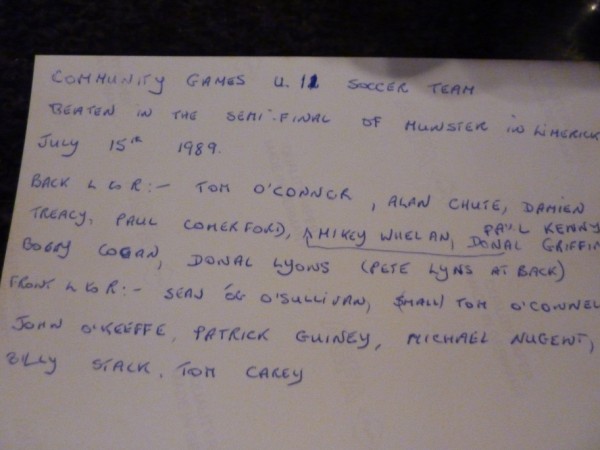 COMMUNITY GAMES U.12 SOCCER TEAM
BEATEN IN THE SEMI-FINAL OF MUNSTER IN LIMERICK
JULY 15TH 1989.
BACK L to R:- TOM O'CONNOR, ALAN CHUTE, DAMIEN
TREACY, PAUL COMERFORD, MIKEY WHELAN, PAUL KENNY
DONAL GRIFFIN
BOBBY COGAN, DONAL LYONS (PETE LYNS AT BACK)
FRONT L to R:- SEAN O'SULLIVAN, SMALL TOM O'CONNEL
JOHN O'KEEFFE, PATRICK GUINEY, MICHAEL NUGENT,
BILLY STACK, TOM CAREY